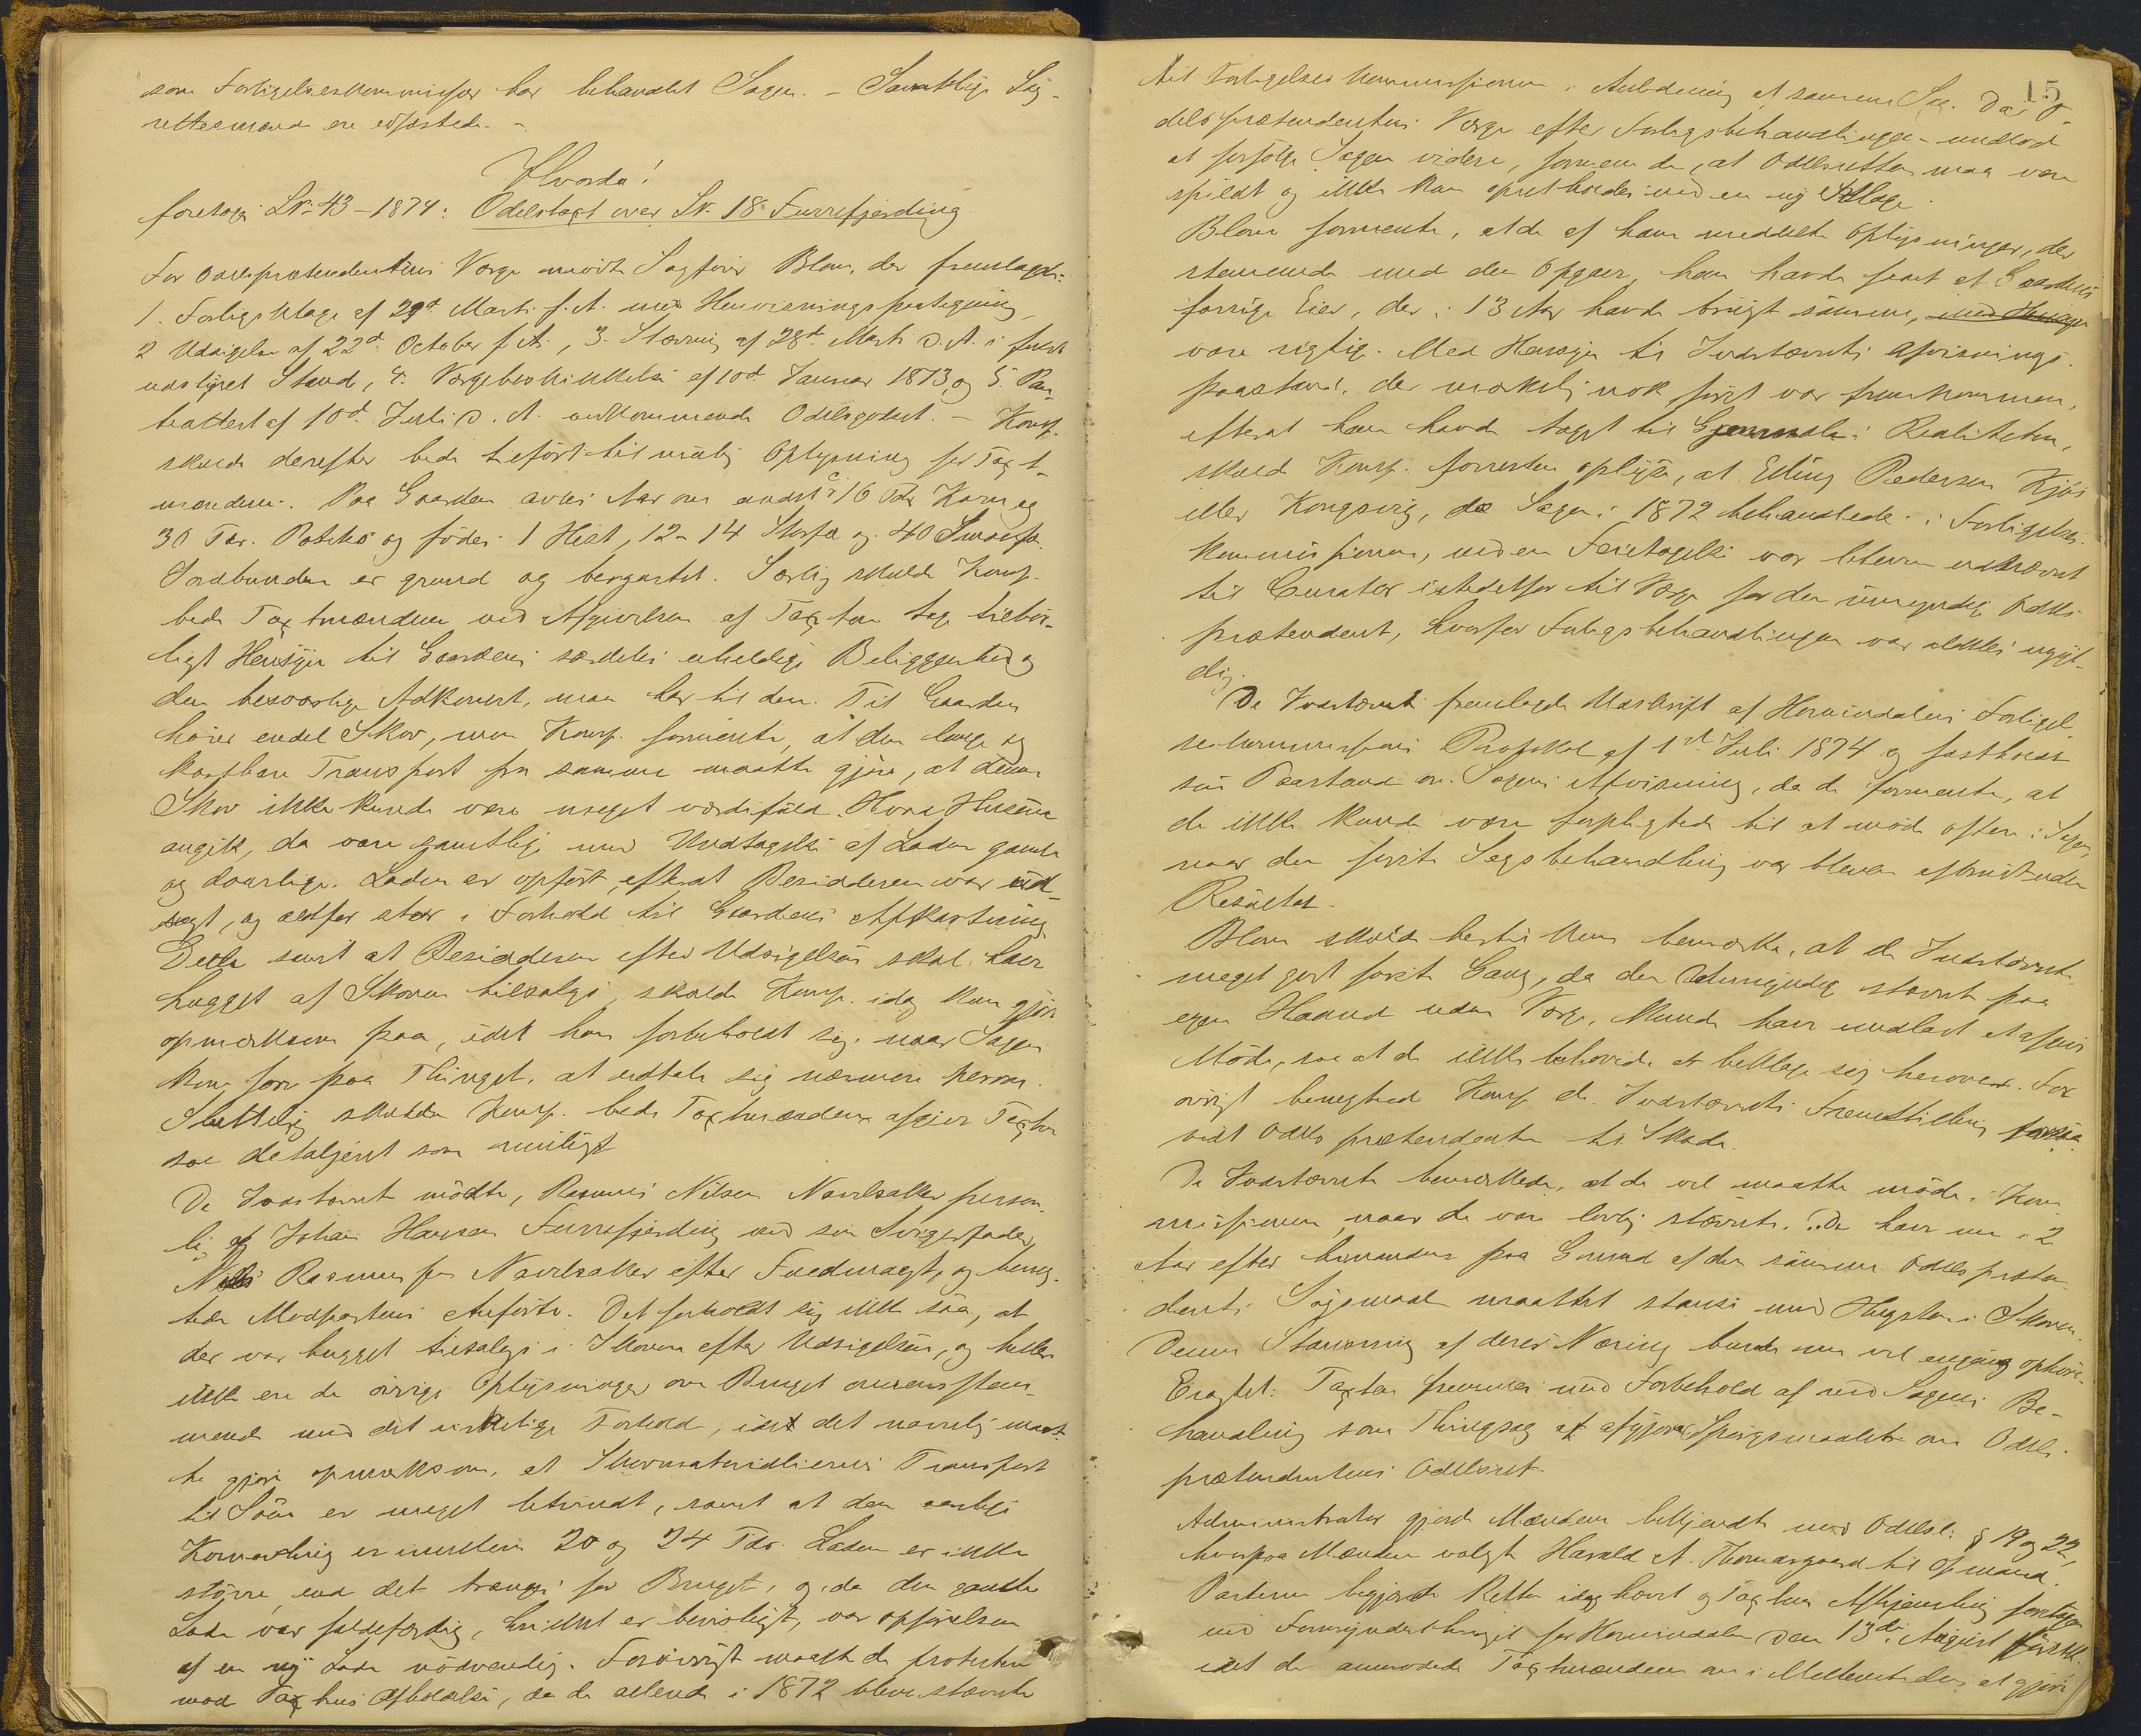 som Forligelseskommissær har behandlet Sagen. – Samtlige Lag-
rettesmænd ere edfæstede. –
Hvorda!
foretoges LN. 43 – 1874: Odelstaxt over LN. 18 Furrefjerding
For Odelsprætendentens Værge mødte Sagfører Blom, der fremlagde:
1. Forligsklage af 29d Marts f. A. med Henvisningspaategning,
2 Udsigelse af 22d October f. A., 3. Stævning af 28d Marts d. A. i fuldt
udstyret Stand, 4. Værgebeskikkelse af 10d Januar 1873, og 5. Pan-
teattest af 10d Juli d. A. vedkommende Odelsgodset. – Komp.
skulde derefter bede tilført til mulig Oplysning for Taxt-
mændene. Paa Gaarden avles Aar om andet c: 16 Tdr Korn og
30 Tdr. Poteter og födes 1 Hest, 12 – 14 Storfæ og 40 Smaafæ.
Jordbunden er grund og bergartet. Særlig skulde Komp.
bede Taxtmændene ved Afgivelsen af Taxten tage tilbör-
ligt Hensyn til Gaardens særdeles uheldige Beliggenhed og
den besværlige Adkomst, man har til den. Til Gaarden
hörer endel Skov, men Komp. formente, at den lange og
kostbare Transport fra samme maatte gjöre, at denne
Skov ikke kunde være meget værdifuld. Hvad Husene
angik, da vare samtlige med Undtagelse af Laden gamle
og daarlige. Laden er opfört, efterat Besidderen var ud-
sagt, og altfor stor i Forhold til Gaardens Afkastning
Dette samt at Besidderen efter Udsigelsen skal have
hugget af Skoven tilsalgs, skulde Komp. idag kun gjöre
opmærksom paa, idet han forbeholdt sig, naar Sagen
kom for paa Thinget, at udtale sig nærmere herom.
Sluttelig skulde Komp. bede Taxtmændene afgive Taxten
saa detaljeret som muligt
De Indstævnte mödte, Rasmus Nilsen Navelsaker person-
lig og Johan Hansen Furrefjerding ved sin Svigerfader,
Nils Rasmussen Navelsaker efter Fuldmagt, og benæg-
tede Modpartens Anförte. Det forholdt sig ikke saa, at
der var hugget tilsalgs i Skoven efter Udsigelsen, og heller
ikke ere de övrige Oplysninger om Bruget overensstem-
mende med det virkelige Forhold, idet det navnlig maat-
te gjöre opmærksom, at Skovmaterialiernes Transport
til Söen er meget letvindt, samt at den aarlige
Kornavling er imellem 20 og 24 Tdr. Laden er ikke
större end det trænges for Bruget, og da den gamle
Lade var faldefærdig, hvilket er bevisligt, var opförelsen
af en ny Lade nödvendig. Forövrigt maatte de protestere
mod Taxtens Afholdelse, da de allerede i 1872 bleve stævnte
15
til Forligelseskommissionen i Anledning af samme Sag. Da O-
delsprætendentens Værge efter Forligsbehandlingen undlod
at forfölge Sagen videre, formene de, at Odelsretten maa være
spildt og ikke kan opretholdes ved en ny Klage.
Blom formente, at de af ham meddelte Oplysninger, der
stemmede med den Opgave, han havde faaet af Gaardens
forrige Eier, der i 13 Aar havde brugt samme, med Hensyn
vare rigtige. Med Hensyn til Indstævntes Afvisnings-
paastand, der mærkelig nok först var fremkommen,
efterat han havde taget til Gjenmæle i Realiteten,
skulde Komp. forresten oplyse, at Elling Pedersen Kjös
eller Kongsvig, da Sagen i 1872 behandledes i Forligelses-
kommissionen, ved en Feiltagelse var bleven udnævnt
til Curator istedetfor til Værge for den umyndige Odels-
prætendent, hvorfor Forligsbehandlingen var aldeles ugyl-
dig.
De Indstævnte fremlagde Udskrift af Hornindalens Forligel-
seskommissions Protokol af 1st Juli 1874 og fastholdt
sin Paastand om Sagens Afvisning, da de formente, at
de ikke kunde være forpligtede til at möde oftere i Sagen,
naar den förste Sagsbehandling var bleven afsluttet uden
Resultat.
Blom skulde hertil kun bemærke, at de Indstævnte
meget godt förste Gang, da den Umyndige stævnte paa
egen Haand uden Værge, kunde have undladt at afgive
Möde, saa at de ikke behövede at beklage sig herover. For-
övrigt benegtede Komp. de Indstævntes Fremstilling forsaa-
vidt Odelsprætendenten til Skade.
De Indstævnte bemærkede, at de vel maatte möde i Kom-
missionen, naar de vare lovlig stævnte. De have nu i 2
Aar efter hinanden paa Grund af den samme Odelspræten-
dents Sögsmaal maattet standse med Hugsten i Skoven.
Denne Standsning af deres Næring burde nu vel engang ophöre.
Eragtet: Taxten fremmes med Forbehold af ved Sagens Be-
handling som Thingsag at afgjöre Spörgsmaalet om Odels-
prætendentens Odelsret.
Administrator gjorde Mændene bekjendte med Odelsl. § 19 og 22,
hvorpaa Mændene valgte Harald A. Thomasgaard til Opmand.
Parterne begjærede Retten idag hævet og Taxtens Afhjemling foretagen
ved Formynderthinget for Hornindalen den 13de August förstk.
idet de anmodede Taxtmændene om i Mellemtiden at gjöre